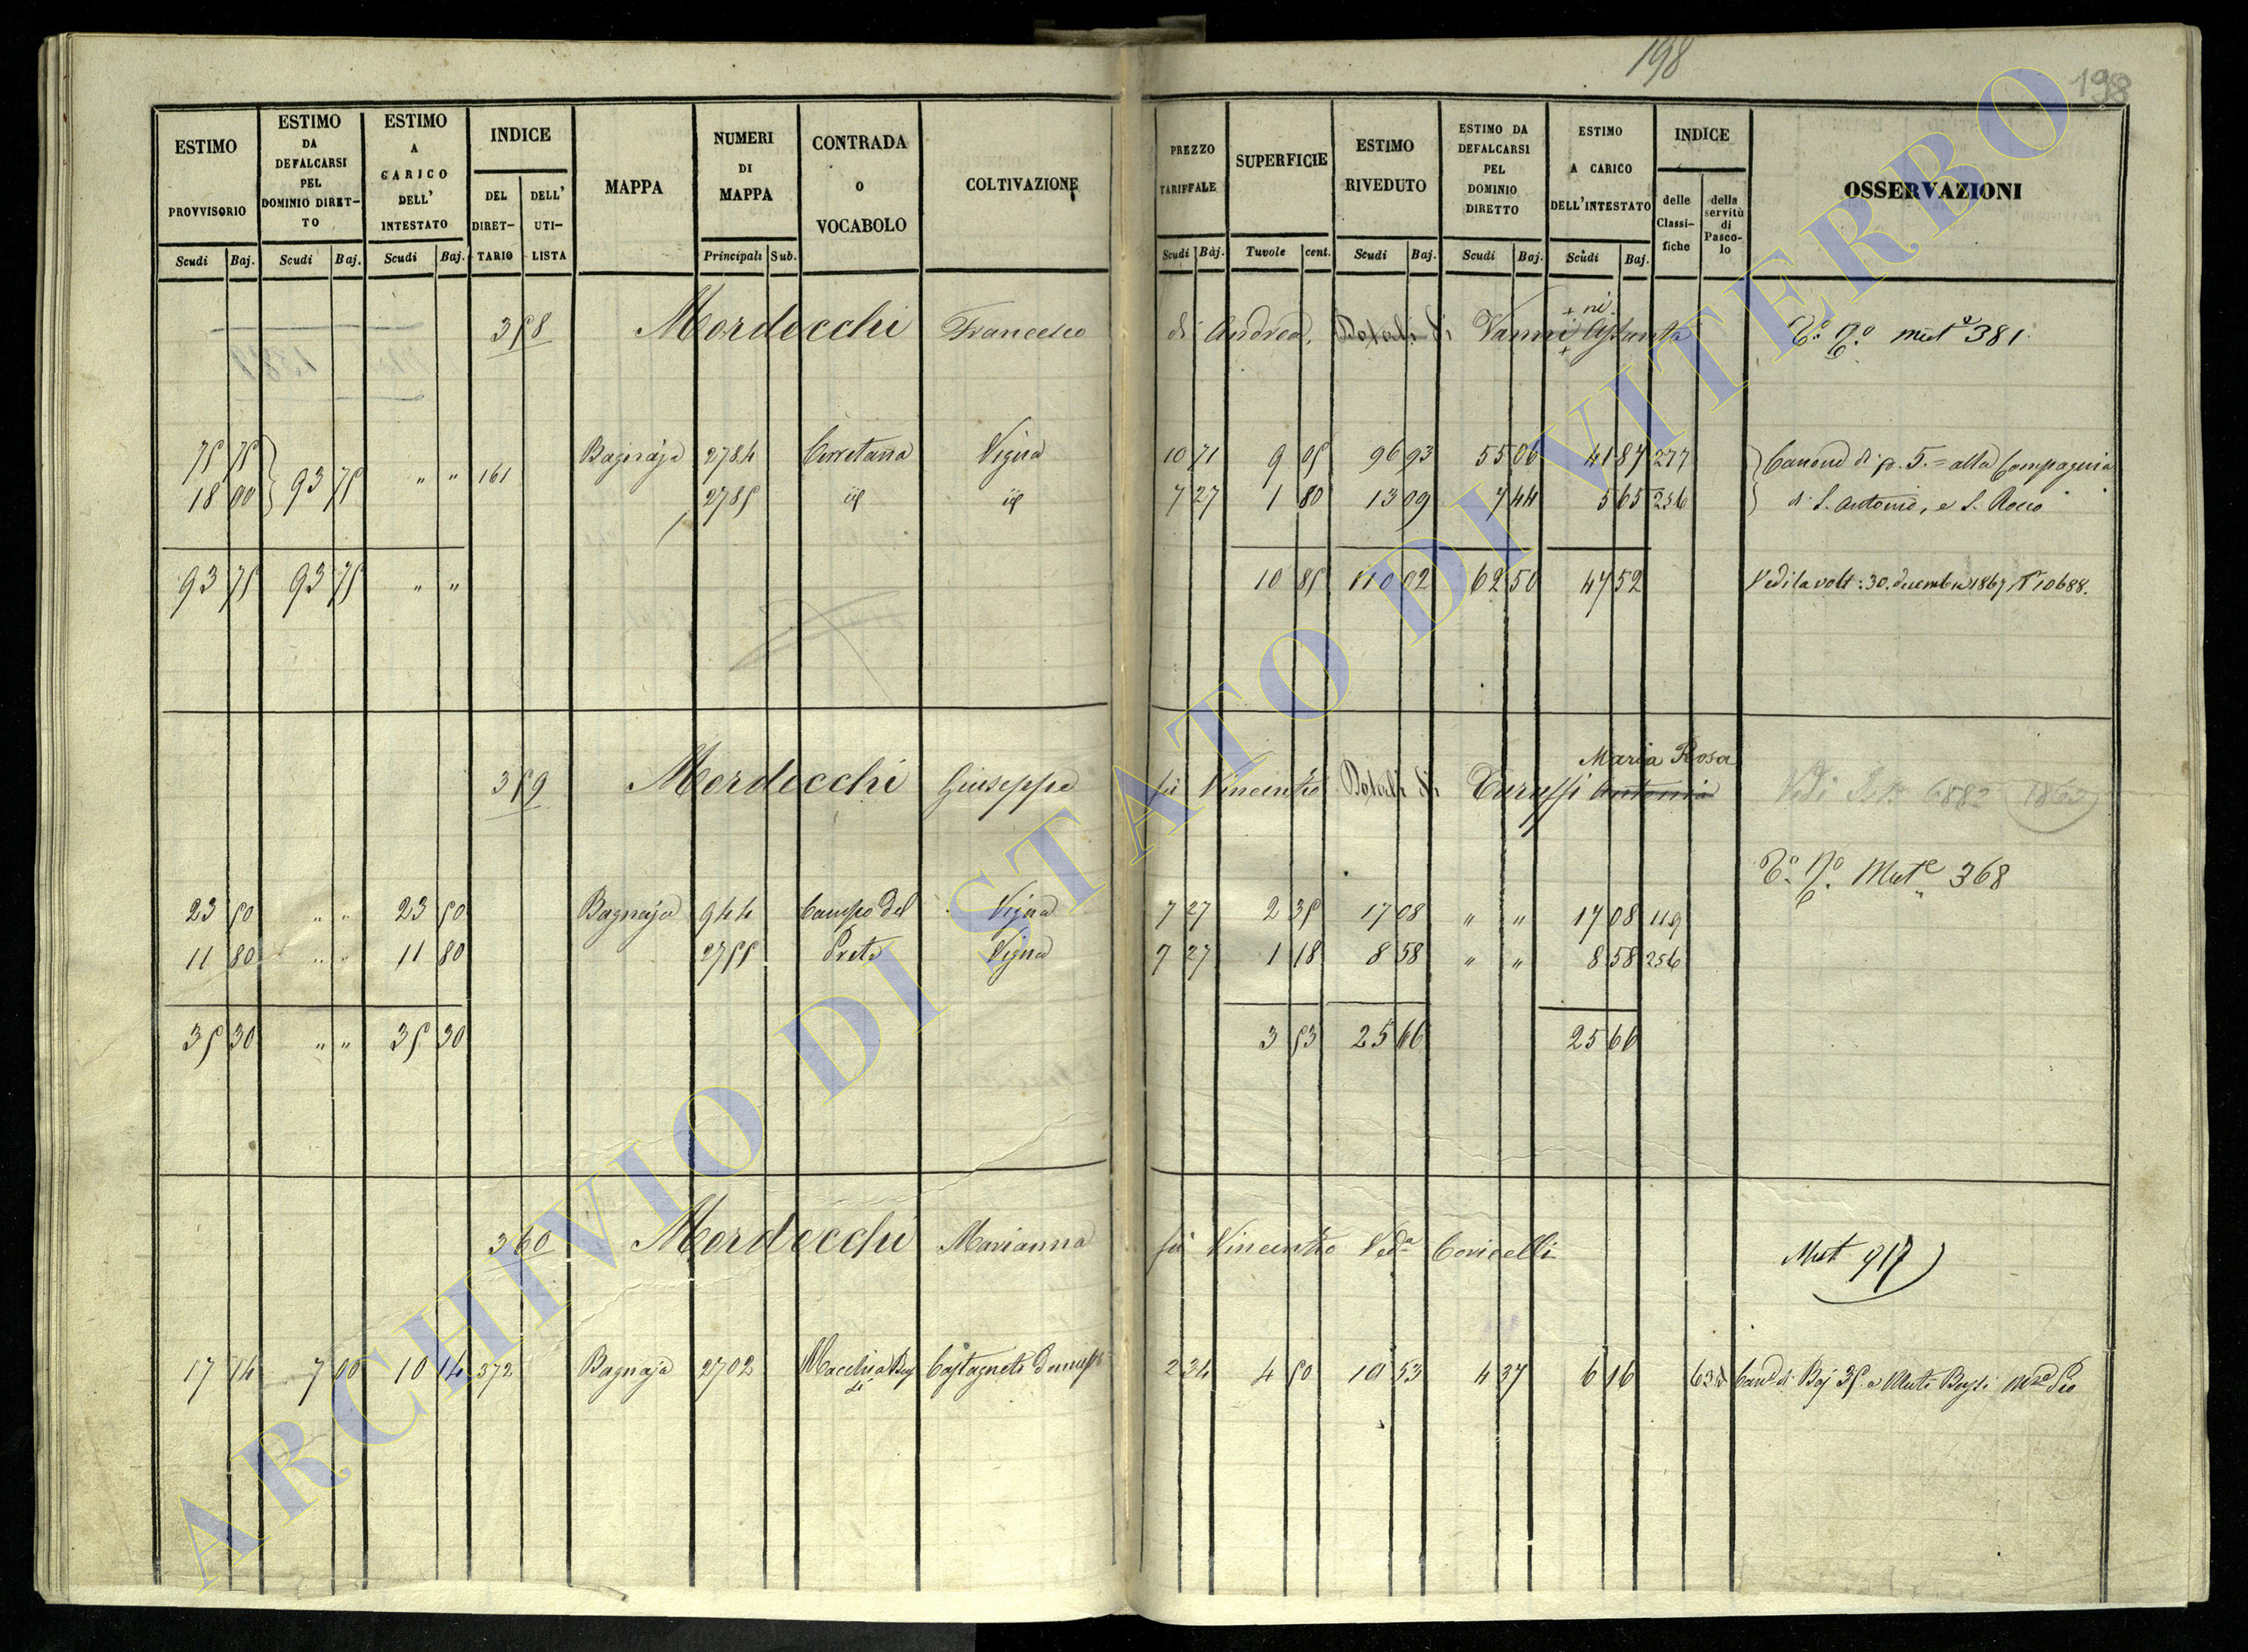 198
198
ESTIMO PROVVISORIO
ESTIMO DA DEFALCARSI PEL DOMINIO DIRETTO
ESTIMO A CARICO DELL' INTESTATO
INDICE
DEL DIRETTARIO
DELL' UTILISTA
MAPPA
NUMERI DI MAPPA
CONTRADA o VOCABOLO
COLTIVAZIONE
PREZZO TARIFFALE
SUPERFICIE
ESTIMO RIVEDUTO
ESTIMO DA DEFALCARSI PEL DOMINIO DIRETTO
ESTIMO A CARICO DELL' INTESTATO
INDICE
delle Classifiche
della servitù di Pascolo
OSSERVAZIONI
Scudi Baj. Scudi Baj. Scudi Baj. Principali Sub. Scudi Baj. Tavole cent. Scudi Baj. Scudi Baj. Scudi Baj.
ni
358 Mordecchi Francesco di Andrea, Vanni Assunta mut 381
75 75 Bagnaja 2784 Cerretana Vigna 10 71 9 05 96 93 55 06 41 87 277 Canone di 5 = alla Compagnia
18 00 93 75 " " 161 2785 id id 7 27 1 80 13 09 7 44 5 65 256 di S. Antonio, e S. Rocco
93 75 93 75 " " 10 85 110 02 62 50 47 52 Vedi la volt: 30. decembre 1867 N 10688.
Maria Rosa
359 Mordecchi Giuseppe fu Vincenzo Dotali di Antonia Vedi 6882 1862
Mut 368
23 50 " " 23 50 Bagnaja 944 Campo del Vigna 7 27 2 35 17 08 " " 17 08 119
11 80 " " 11 80 2755 Prete Vigna 7 27 1 18 8 58 " " 8 58 256
35 30 " " 35 30 3 53 25 66 25 66
360 Mordecchi Marianna fu Vincenzo Ved.a Coricelli Mut 917
17 14 7 00 10 14 372 Bagnaja 2702 Macchia Castagneto 2 34 4 50 10 53 4 37 6 16 63 di Baj 35 a
ARCHIVIO DI STATO DI VITERBO